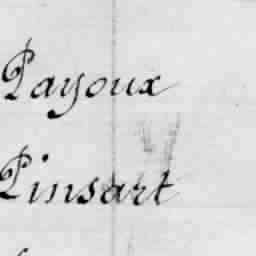 Payoux
Pinsart